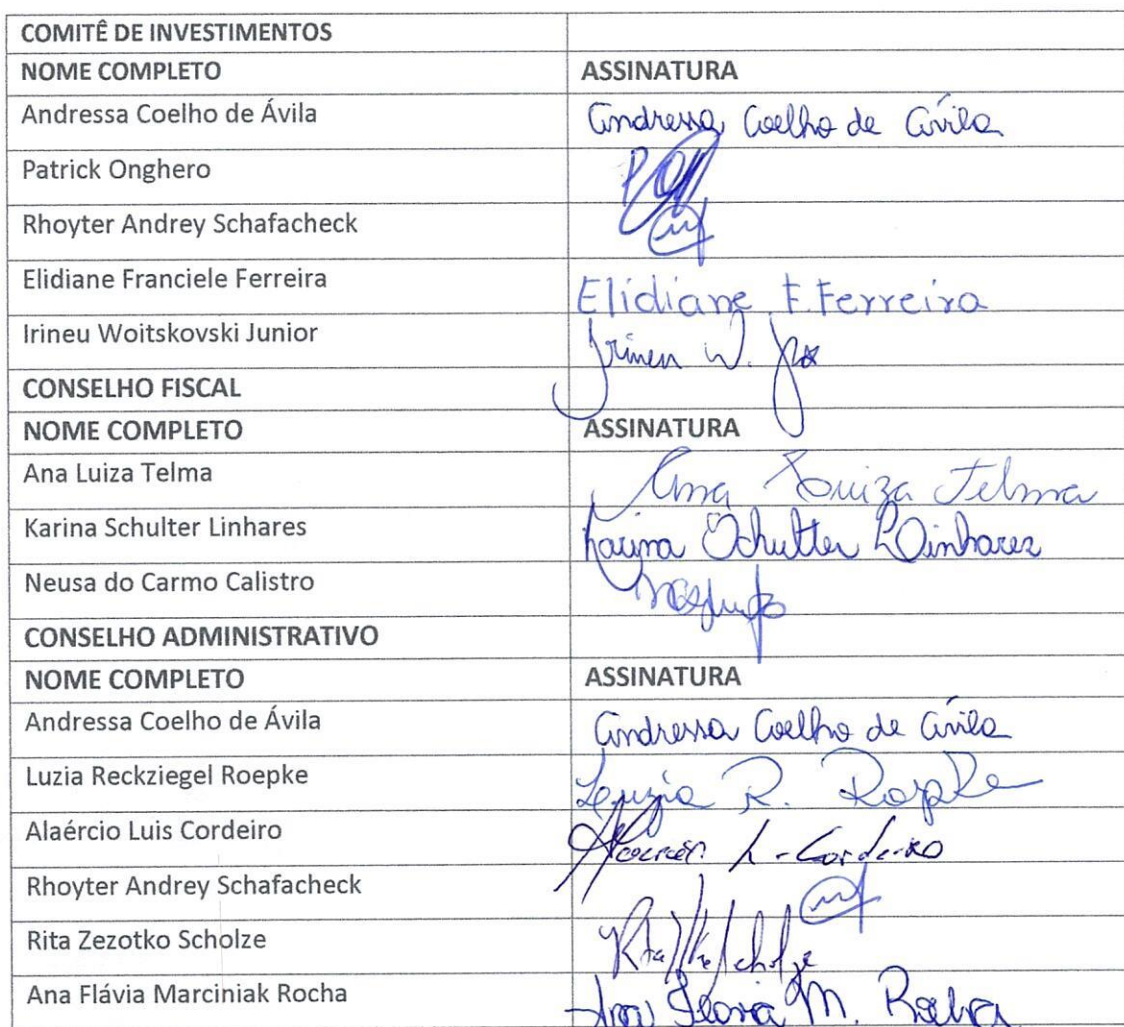 COMITÊ DE INVESTIMENTOS
NOME COMPLETO ASSINATURA
Andressa Coelho de Ávila Andressa Coelho de Ávila
Patrick Onghero
Rhoyter Andrey Schafacheck
Elidiane Franciele Ferreira Elidiane F. Ferreira
Irineu Woitskovski Junior Irineu W. Jr
CONSELHO FISCAL
NOME COMPLETO ASSINATURA
Ana Luiza Telma Ana Luiza Telma
Karina Schulter Linhares Karina Schulter Linhares
Neusa do Carmo Calistro
CONSELHO ADMINISTRATIVO
NOME COMPLETO ASSINATURA
Andressa Coelho de Ávila Andressa Coelho de Ávila
Luzia Reckziegel Roepke Luzia R. Ropke
Alaércio Luis Cordeiro L. Cordeiro
Rhoyter Andrey Schafacheck
Rita Zezotko Scholze Rita Scholze
Ana Flávia Marciniak Rocha Ana Flavia M. Rocha